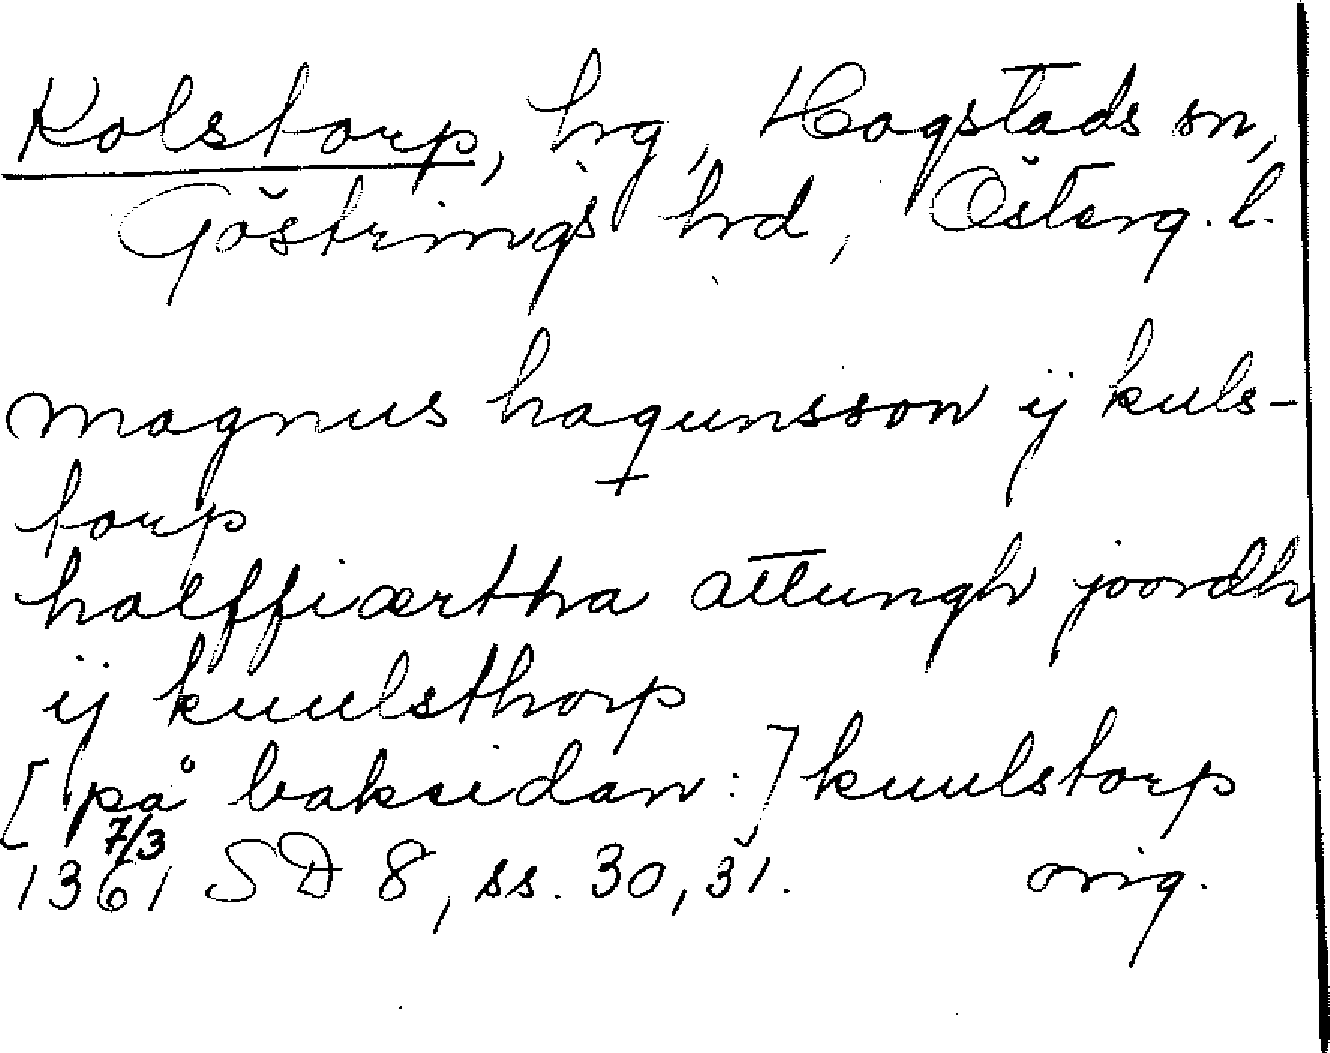 Kolstorp, hrg, Hogstads sn,
Göstrings hrd, Österg. l.
magnus haqunsson ij kuls-
torp
halffiærtha attungh joordh
ij kuulsthorp
[på baksidan:] kuulstorp
7/3
1361 SD 8, ss. 30, 31. orig.